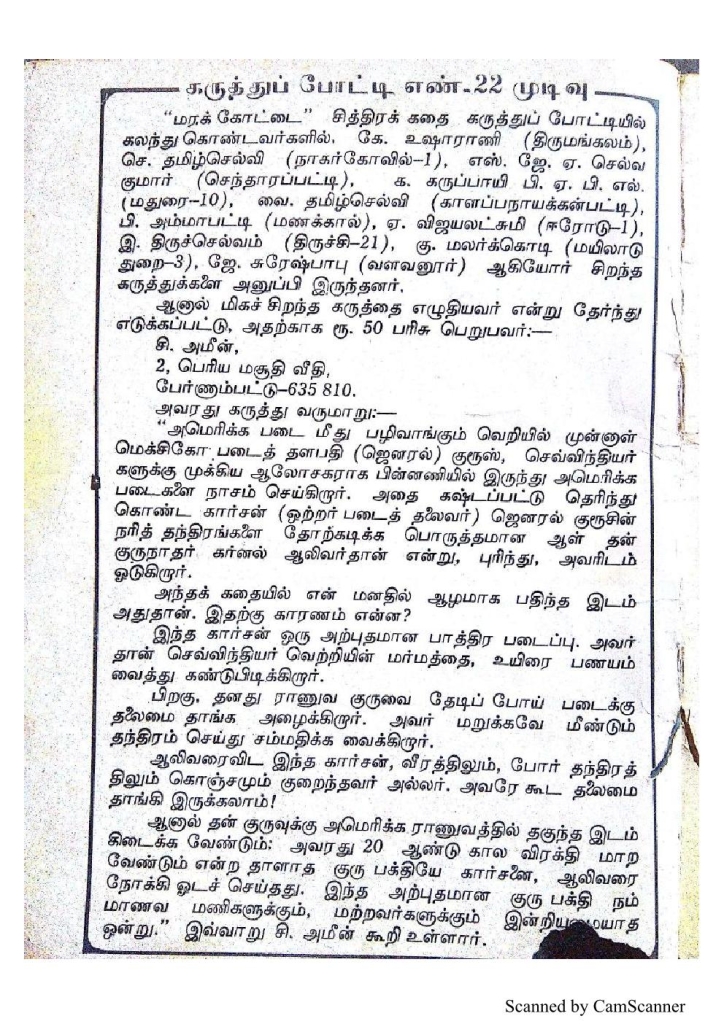 கருத்துப் போட்டி எண்-22 முடிவு
"மரக் கோட்டை" சித்திரக் கதை கருத்துப் போட்டியில்
கலந்து கொண்டவர்களில், கே. உஷாராணி (திருமங்கலம்),
செ. தமிழ்செல்வி (நாகர்கோவில்–1), எஸ். ஜே. ஏ. செல்வ
குமார் (செந்தாரப்பட்டி), க. கருப்பாயி பி. ஏ. பி. எல்.
(மதுரை–10), வை. தமிழ்செல்வி (காளப்பநாயக்கன்பட்டி),
பி. அம்மாபட்டி (மணக்கால்), ஏ. விஜயலட்சுமி (ஈரோடு–1),
இ. திருச்செல்வம் (திருச்சி–21), கு. மலர்க்கொடி (மயிலாடு
துறை–3), ஜே. சுரேஷ்பாபு (வளவனூர்) ஆகியோர் சிறந்த
கருத்துக்களை அனுப்பி இருந்தனர்.
ஆனால் மிகச் சிறந்த கருத்தை எழுதியவர் என்று தேர்ந்து
எடுக்கப்பட்டு, அதற்காக ரூ. 50 பரிசு பெறுபவர்:—
சி. அமீன்,
2, பெரிய மசூதி வீதி,
பேர்ணாம்பட்டு–635 810.
அவரது கருத்து வருமாறு:—
"அமெரிக்க படை மீது பழிவாங்கும் வெறியில் முன்னாள்
மெக்சிகோ படைத் தளபதி (ஜெனரல்) குரூஸ், செவ்விந்தியர்
களுக்கு முக்கிய ஆலோசகராக பின்னணியில் இருந்து அமெரிக்க
படைகளை நாசம் செய்கிறார். அதை கஷ்டப்பட்டு தெரிந்து
கொண்ட கார்சன் (ஒற்றர் படைத் தலைவர்) ஜெனரல் குரூசின்
நரித் தந்திரங்களை தோற்கடிக்க பொருத்தமான ஆள் தன்
குருநாதர் கர்னல் ஆலிவர்தான் என்று, புரிந்து, அவரிடம்
ஓடுகிறார்.
அந்தக் கதையில் என் மனதில் ஆழமாக பதிந்த இடம்
அதுதான். இதற்கு காரணம் என்ன?
இந்த கார்சன் ஒரு அற்புதமான பாத்திர படைப்பு. அவர்
தான் செவ்விந்தியர் வெற்றியின் மர்மத்தை, உயிரை பணயம்
வைத்து கண்டுபிடிக்கிறார்.
பிறகு, தனது ராணுவ குருவை தேடிப் போய் படைக்கு
தலைமை தாங்க அழைக்கிறார். அவர் மறுக்கவே மீண்டும்
தந்திரம் செய்து சம்மதிக்க வைக்கிறார்.
ஆலிவரைவிட இந்த கார்சன், வீரத்திலும், போர் தந்திரத்
திலும் கொஞ்சமும் குறைந்தவர் அல்லர். அவரே கூட தலைமை
தாங்கி இருக்கலாம்!
ஆனால் தன் குருவுக்கு அமெரிக்க ராணுவத்தில் தகுந்த இடம்
கிடைக்க வேண்டும்: அவரது 20 ஆண்டு கால விரக்தி மாற
வேண்டும் என்ற தாளாத குரு பக்தியே கார்சனை, ஆலிவரை
நோக்கி ஓடச் செய்தது. இந்த அற்புதமான குரு பக்தி நம்
மாணவ மணிகளுக்கும், மற்றவர்களுக்கும் இன்றியமையாத
ஒன்று." இவ்வாறு சி. அமீன் கூறி உள்ளார்.
Scanned by CamScanner